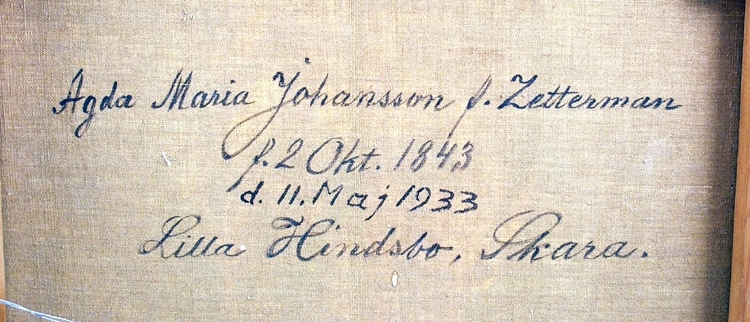 Agda Maria Johansson f. Zetterman
f. 2 Okt. 1843
d. 11. Maj 1933
Lilla Hindsbo, Skara.